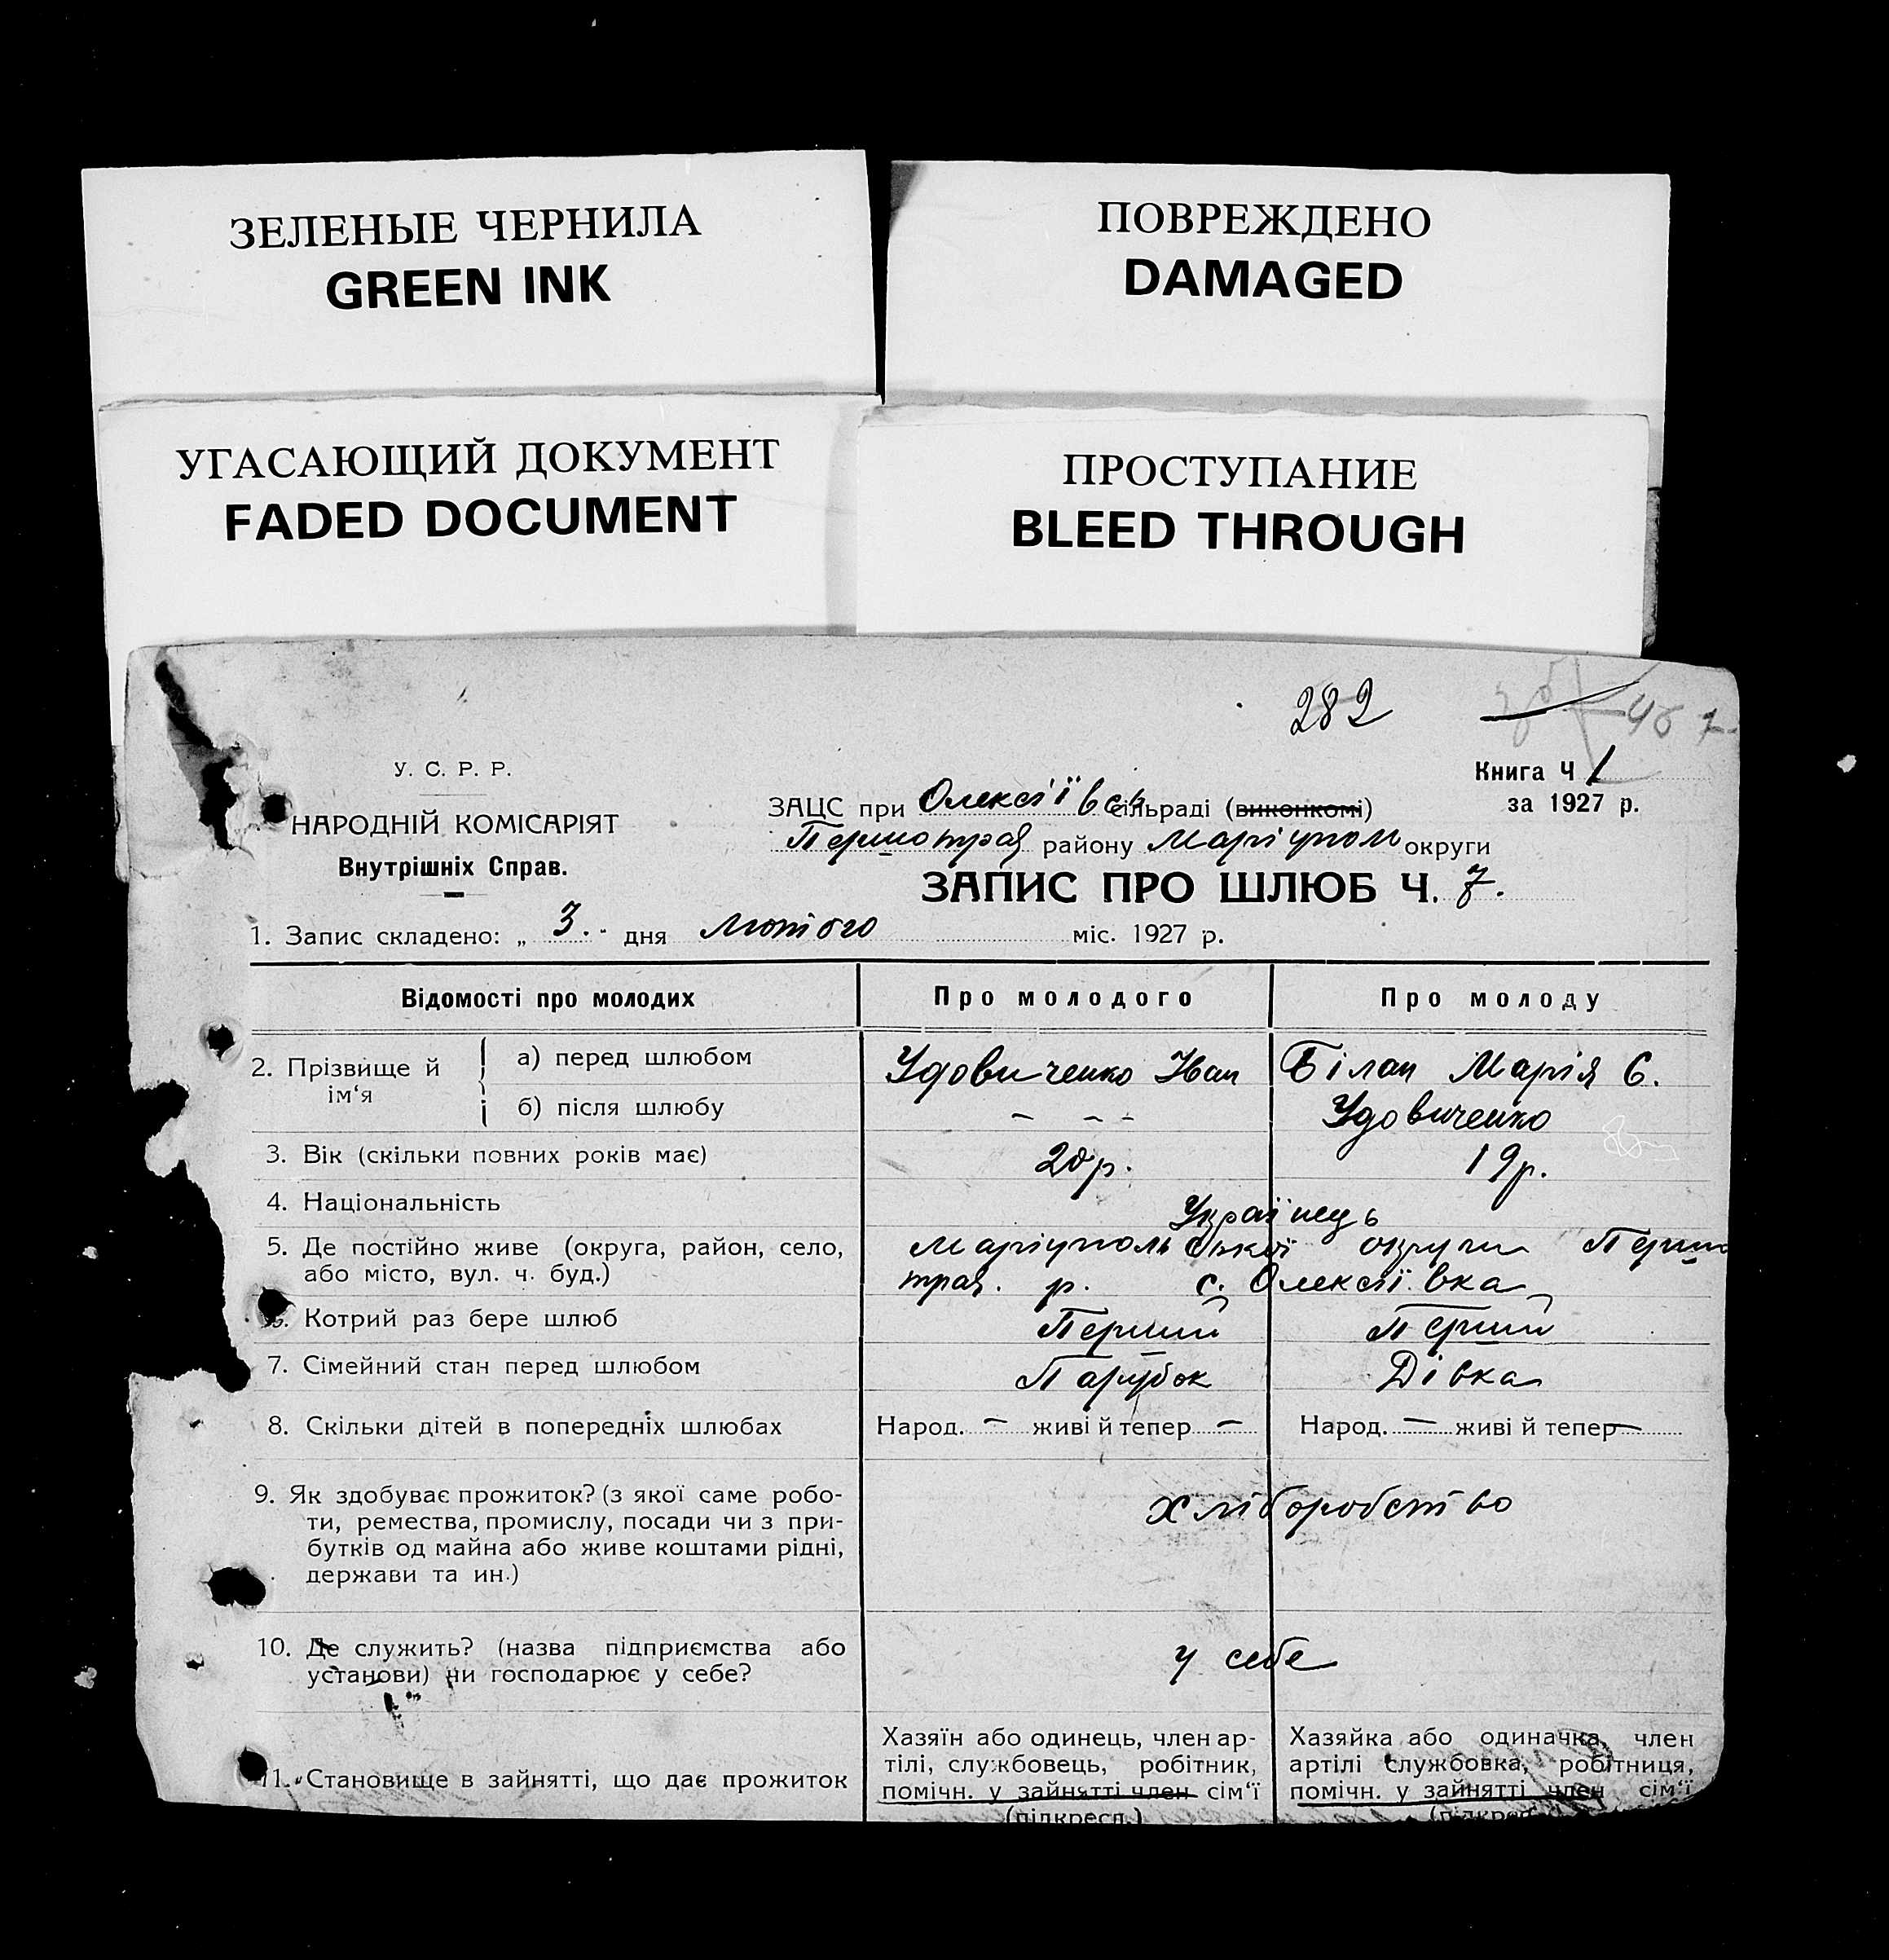 ЗЕЛЕНЫЕ ЧЕРНИЛА
GREEN INK
ПОВРЕЖДЕНО
DAMAGED
УГАСАЮЩИЙ ДОКУМЕНТ
FADED DOCUMENT
ПРОСТУПАНИЕ
BLEED THROUGH
282
У. С. Р. Р.
НАРОДНІЙ КОМІСАРІЯТ
Внутрішніх Справ.
Книга Ч 1
за 1927 р.
ЗАЦС при Олексіївск сільраді (виконкомі)
Першотрав району Маріуполь округи
ЗАПИС ПРО ШЛЮБ Ч. 7.
1. Запис складено: „ 3. " дня лютого міс. 1927 р.
Відомості про молодих Про молодого Про молоду
2. Прізвище й ім‘я а) перед шлюбом Удовиченко Іван Білан Марія Є.
б) після шлюбу – - - Удовиченко
3. Вік (скільки повних років має) 20 р. 19 р.
4. Національність Українець
5. Де постійно живе (округа, район, село, Маріупольської округи Першо
або місто, вул. ч. буд.) трав. р. с. Олексіївка
Котрий раз бере шлюб Перший Перший
7. Сімейний стан перед шлюбом Парубок Дівка
8. Скільки дітей в попередніх шлюбах Народ. – живі й тепер – Народ. – живі й тепер –
9. Як здобуває прожиток? (з якої саме робо-
ти, ремества, промислу, посади чи з при-
бутків од майна або живе коштами рідні,
держави та ин.)
хліборобство
10. Де служить? (назва підприємства або
установи) чи господарює у себе?
у себе
11. Становище в зайнятті, що дає прожиток
Хазяїн або одинець, член ар-
тілі, службовець, робітник,
помічн. у зайнятті член сім‘ї
(підкресл.)
Хазяйка або одиначка, член
артілі службовка, робітниця,
помічн. у зайнятті член сім‘ї